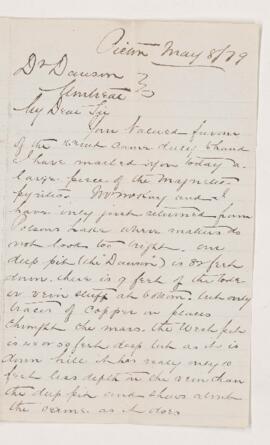 Pictou May 8/79
Dr Dawson
Montreal
My Dear Sir
Your valued favor
of the came duly to hand
I have mailed you today a
large piece of the Magnetic
pyrites. Mr and I
have only just returned from
Polsons Lake where matters do
not look too bright. One
deep pit (the Dawson) is 82 feet
down. there is 9 feet of the lode
or vein stuff at bottom. but only
traces of Copper in places
through the mass. the West pit
is feet deep but as it is
down hill it has realy only 10
feet less depth in the vein than
the deep pit and shows about
the same as it does